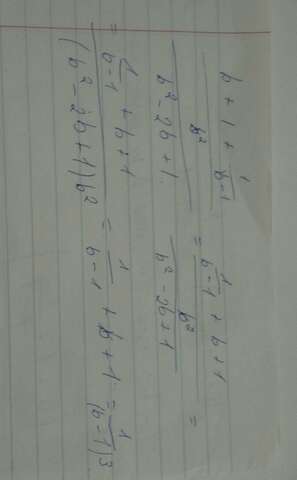 b + 1 + 1/(b-1) / b² / (b² - 2b + 1) = 1/(b-1) + b + 1 / b² / (b² - 2b + 1) =
= 1/(b-1) + b + 1 / (b² - 2b + 1) b² = 1/(b-1) + b + 1 = 1/(b-1)³